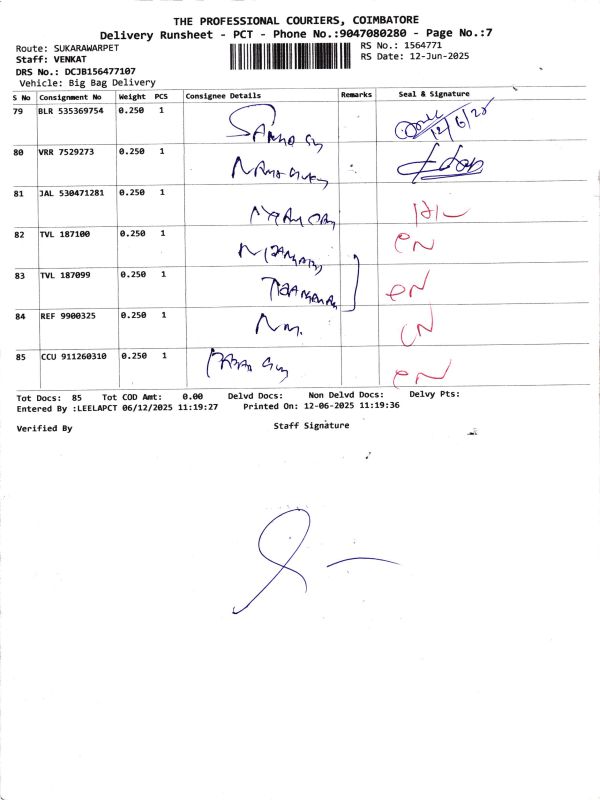 THE PROFESSIONAL COURIERS, COIMBATORE
Delivery Runsheet - PCT - Phone No.:9047080280 - Page No.:7
Route: SUKARAWARPET
RS No.: 1564771
Staff: VENKAT
RS Date: 12-Jun-2025
DRS No.: DCJB156477107
Vehicle: Big Bag Delivery
S No Consignment No Weight PCS Consignee Details Remarks Seal & Signature
79 BLR 535369754 0.250 1 12/6/25
80 VRR 7529273 0.250 1
81 JAL 530471281 0.250 1
82 TVL 187100 0.250 1
83 TVL 187099 0.250 1
84 REF 9900325 0.250 1
85 CCU 911260310 0.250 1
Tot Docs: 85 Tot COD Amt: 0.00 Delvd Docs: Non Delvd Docs: Delvy Pts:
Entered By :LEELAPCT 06/12/2025 11:19:27 Printed On: 12-06-2025 11:19:36
Verified By Staff Signature